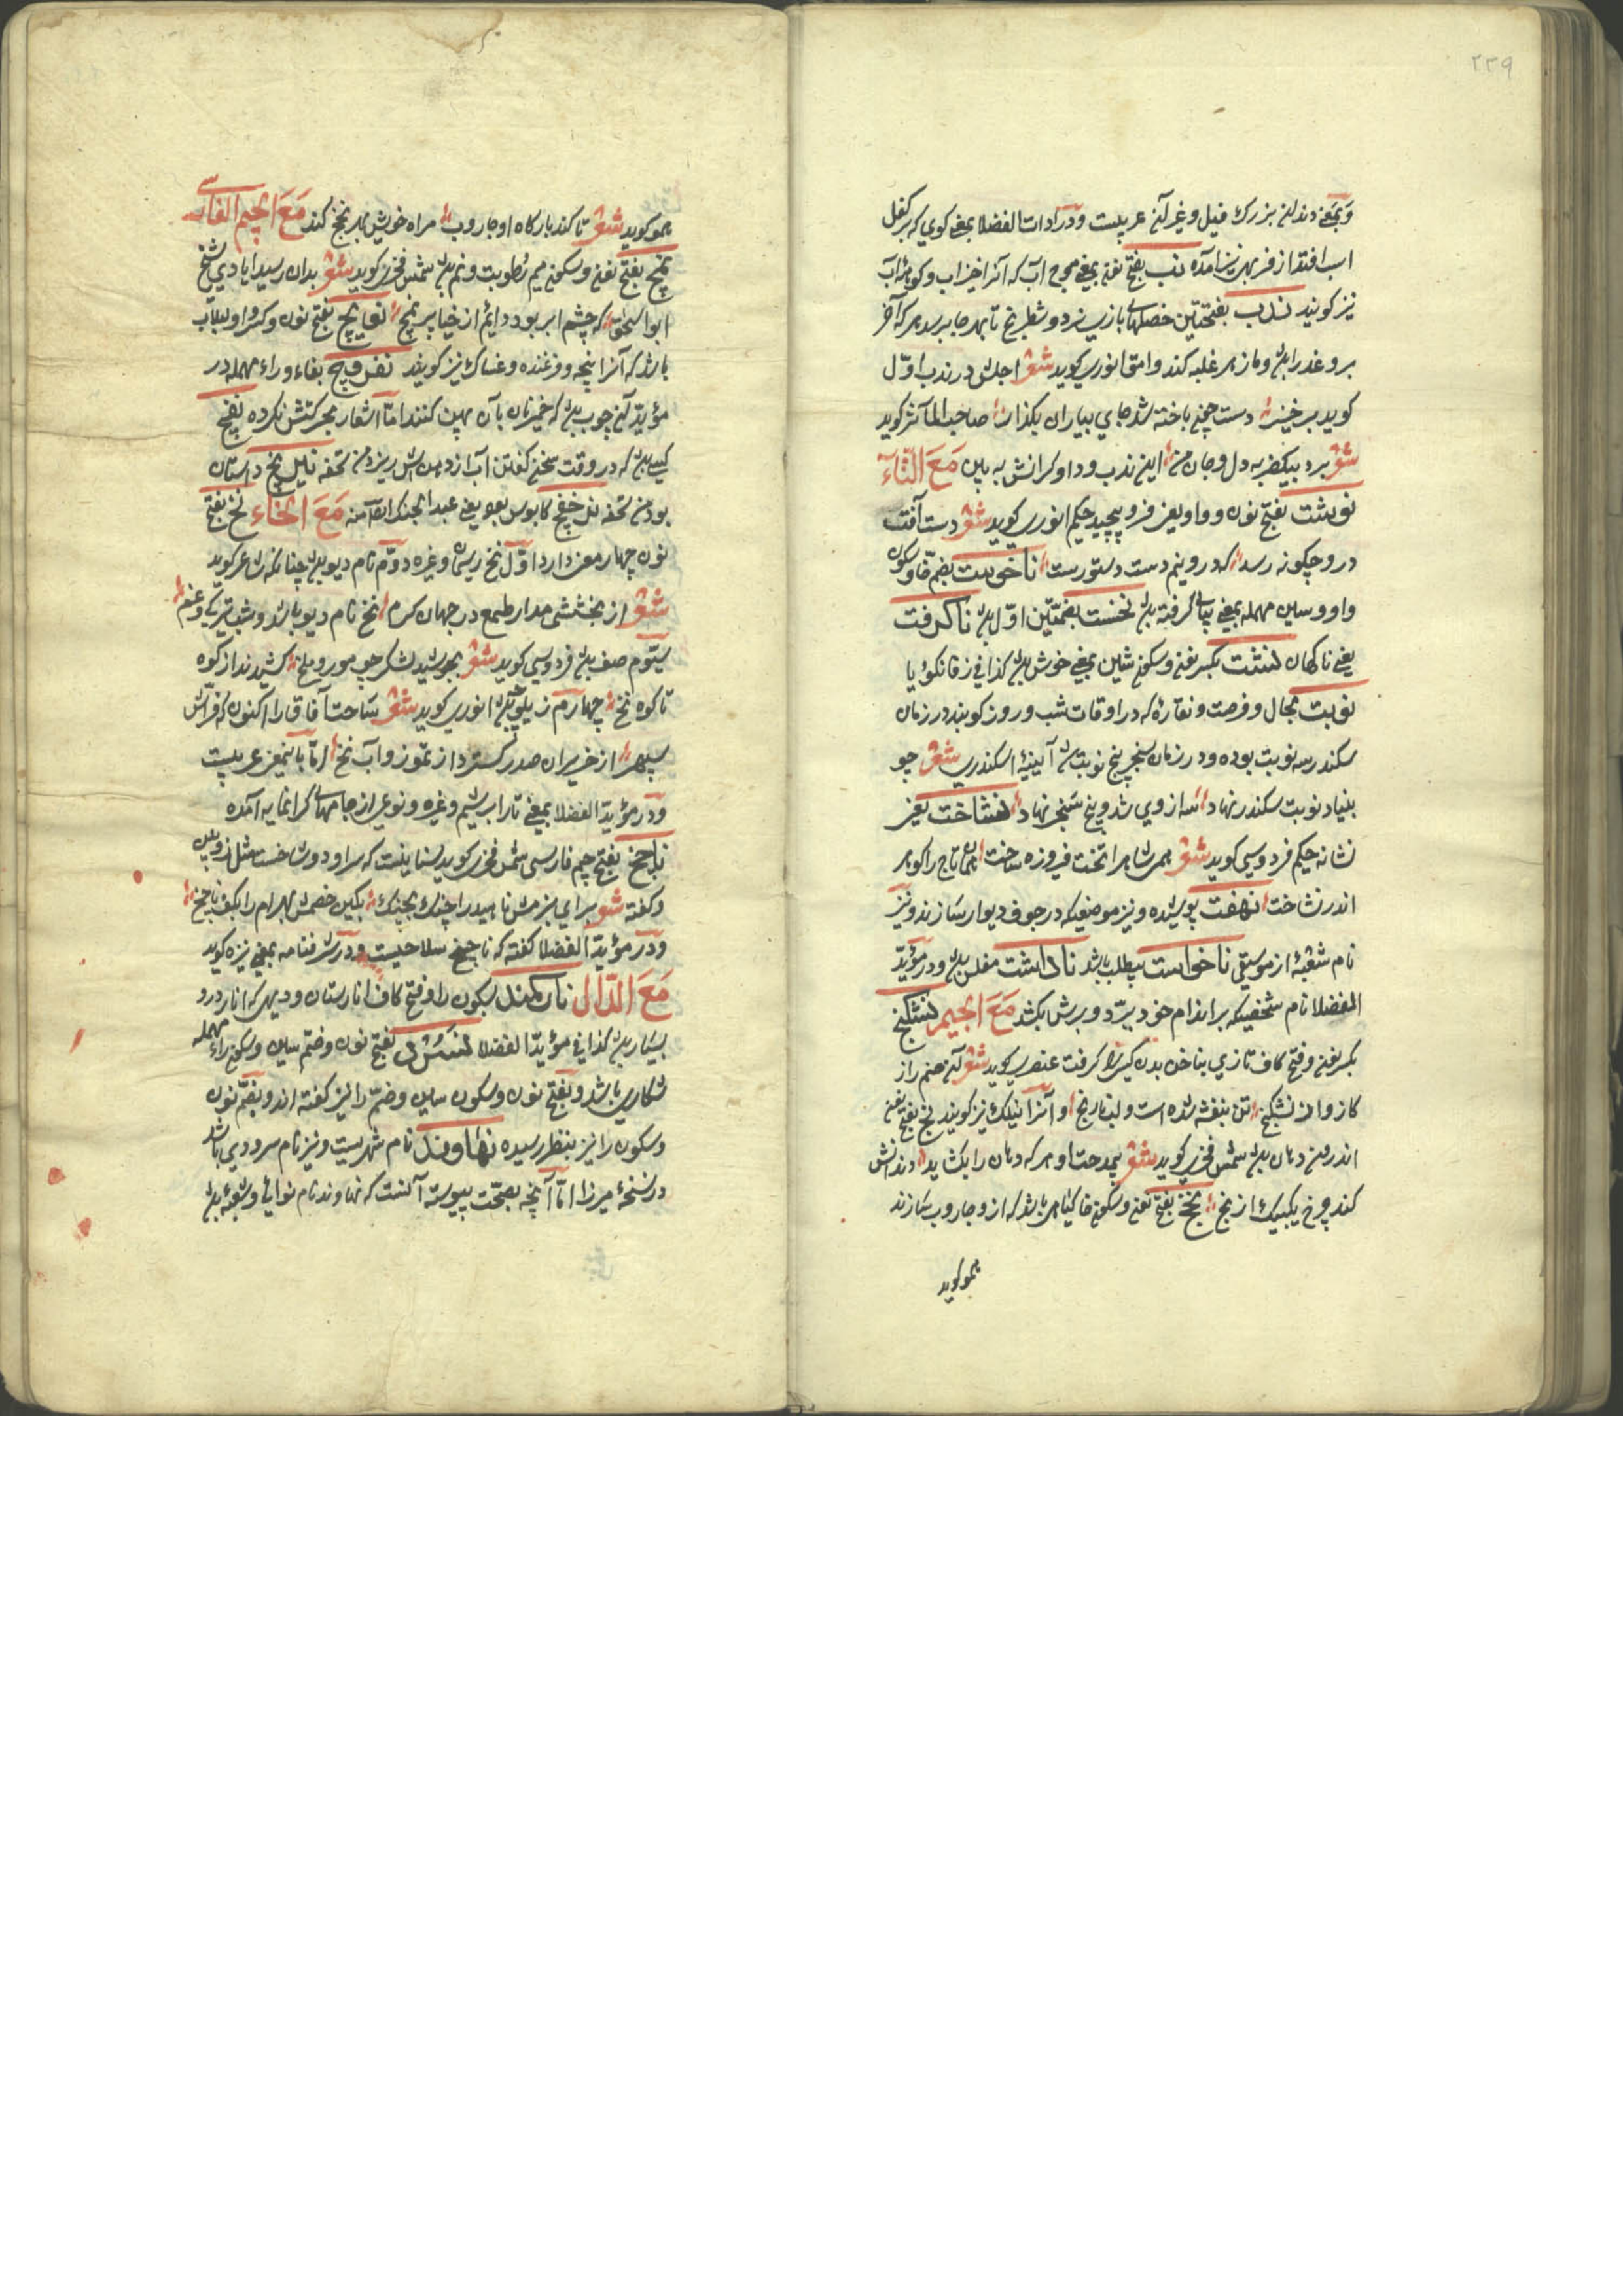 ۲۲۹
وبمعنی دندان بزرك فیل وغیر آن عربیست ودر ادات الفضلا بمعنی کوی که بر کفل
اسب افتد از فربهی نیز امده نب بفتح نون بمعنی موج آب که آنرا خیزاب وکوهۀ آب
نیز کویند ندب بفتحتین خصلهای بازی نرد وشطرنج تا بهر جا برسد هر که آخر
برو عذرا باشد وما زهر غلبه کند وامق انوری کوید شعر اجلش در ندب اوّل
کوید برخیز دست چون باخته شد جای بیاران بکذار صاحب المآثر کوید
شعر برد بیکضربه دل وجان من این ندب وداو کرانش به بین مَعَ التّآء
نوبشت بفتح نون وواو یعنی فرو پیچید حکیم انوری کوید شعر دست آفت
درو چکونه رسد که درو نیم دست دستورست ناخوست بضم خا وسکون
واو وسین مهمله بمعنی بپای کرفته باشد نخست بضمّتین اوّل باشد ناکرفت
یعنی ناکهان نشت بکسر نون وسکون شین بمعنی خوش باشد کذا فی زفانکویا
نوبت مجال وفرصت ونقاره که در اوقات شب وروز کویند در زمان
سکندر سه نوبت بوده ودر زمان سنجر پنج نوبت شد آیینۀ اسکندری شعر چو
بنیاد نوبت سکندر نهاد سه از وی شد و پنج سنجر نهاد نشاخت یعنی
نشانه حکیم فردوسی کوید شعر همی شاهرا تخت فیروزه ساخت همان تاج را کوهر
اندر نشاخت نهفت پوشیده ونیز موضعیکه در جوف دیوار سازند ونیز
نام شعبۀ از موسیقی ناخواست بیطلب باشد ناداشت مفلس باشد ودر مؤیّد
الفضلا نام شخصیکه بر اندام خود ببرّد وبرش بکشد مَعَ الجیم نشکنج
بکسر نون وفتح کاف تازی بناخن بدن کسیرا کرفت عنصری کوید شعر آن صنم را ز
کاز واز نشکنج تن بنفشه شده است ولب نارنج وآنرا نیلك نیز کویند نج بفتح نون
اندرون دهان باشد شمس فخری کوید شعر بمدحت او هر که دهان را بکشاید دندانش
کند چرخ یکیك از نج نخج بفتح نون وسکون خا کیاهی باشد که از و جاروب سازند
همو کوید
همو کوید شعر تا کند بارکاه او جاروب مراه خویش بهر نخج کند مَعَ الجیم الفارسی
نمچ بفتح نون وسکون میم رطوبت ونم باشد شمس فخری کوید شعر بدان رسید ایادی شیخ
ابو اسحق که چشم ابر بود دائم از حیا پر نمچ نوایچ بفتح نون وکسر واو لبلاب
باشد که آنرا پیچه وفرغنده وغساك نیز کویند نفرویچ بفاء وراء مهمله در
مؤیّد آن چوب باشد که خمیر نان بآن پهن کنند امّا اشعار بحرکتش نکرده نفچ
کسی باشد که در وقت سخن کفتن آب از دهنش ریزد من تحفه نایل نخچ داستان
بود من تحفه نیل خفچ کابوس بود یعنی عبد الجنه ایضا منه مَعَ الخاء نخ بفتح
نون چهار معنی دارد اوّل نخ ریسمان وغیره دوّم نام دیو باشد چنانکه شاعر کوید
شعر از بخشش مدار طمع در جهان کرم نخ نام دیو باشد وشب تیرکی وغم
سیّوم صف باشد فردوسی کوید شعر بجوشید لشکر چو مور وملخ کشیدند از کوه
تا کوه نخ چهارم زیلوچه باشد انوری کوید شعر ساحت آفاق را اکنون که فرّاش
سپهر از خریران صدر کسترد از تموز وآب نخ امّا باینمعنی عربیست
ودر مؤیّد الفضلا بمعنی تار ابریشم وغیره ونوعی از جامهای کرانمایه آمده
ناچخ بفتح جیم فارسی شمس فخری کوید سنانیست که سر او دو شاخست مثل زوپین
وکفته شعر برای بزمش ناهید را چنك بچنك بکین خصمش بهرام را بکف ناچخ
ودر مؤیّد الفضلا کفته که ناچخ سلاحیست ودر شرفنامه بمعنی نیزه کوید
مَعَ الدّال نارکند بسکون را وفتح کاف انارستان ودیهی که انار درو
بسیار باشد کذا فی مؤیّد الفضلا نسرد بفتح نون وضمّ سین وسکون راء مهمله
شکاری باشد وبفتح نون وسکون سین وضمّ را نیز کفته اند وبضمّ نون
وسکون را نیز بنظر رسیده نهاوند نام شهریست ونیز نام سرودی باشد
در نسخۀ میرزا امّا آنچه بصحّت پیوسته آنست که نهاوند نام نوایی وشعبۀ باشد